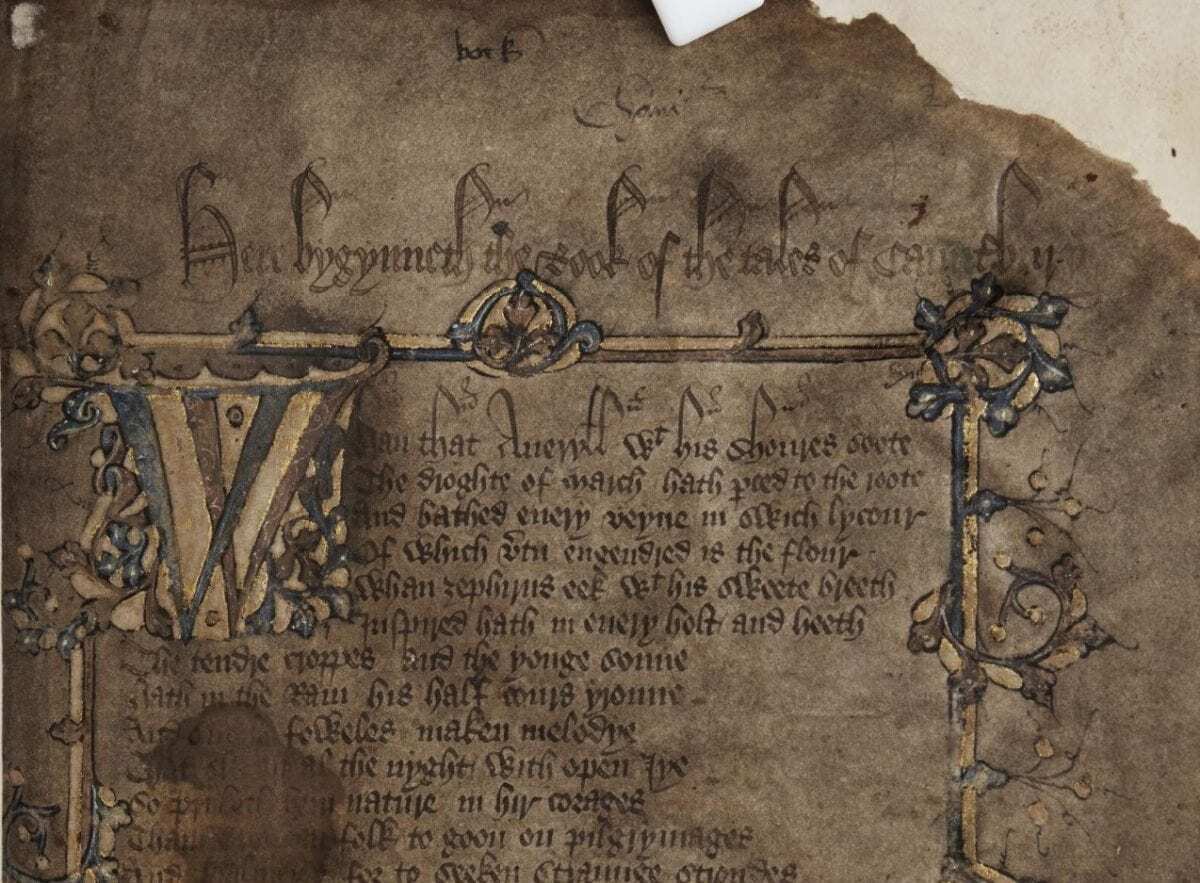 Here bygynneth the Book of the tales of Caunt'bury
Whan that Aueryll wt his shoures soote
The droghte of march hath pced to the roote
And bathed euery veyne in swich lycour
Of which vtu engendred is the flour
Whan zephirus eek wt his sweete breeth
Inspired hath in euery holt and heeth
The tendre croppes and the yonge sonne
Hath in the Ram his half cours yronne
And foweles maken melodye
That al the nyght with open Iye
So nature in hir corages
folk to goon on pilgrymages
And for to seeken straunge strondes